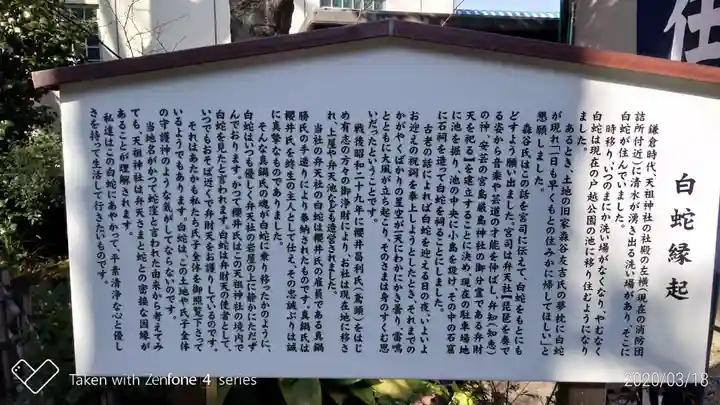 白蛇縁起
鎌倉時代、天祖神社の社殿の左横(現在の消防団
詰所付近)に清水が湧き出る洗い場があり、そこに
白蛇が住んでいました。
時移り、いつのまにか洗い場がなくなり、やむなく
白蛇は現在の戸越公園の池に移り住むようになり
ました。
あるとき、土地の旧家森谷友吉氏の夢枕に白蛇
が現れ「一日も早くもとの住みかに帰してほしい」と
懇願しました。
森谷氏はこの話を宮司に伝えて、白蛇をもとにも
どすよう願い出ました。宮司は弁天社【琵琶を奏で
る姿から音楽や芸道の才能を伸ばし、弁知(知恵)
の神・安芸の宮島厳島神社の御分霊である弁財
天を祀る】を建立することに決め、現在の駐車場地
に池を掘り、池の中央に小島を設け、その中の石窟
に石祠を造って白蛇を祠ることにしました。
古老の話によれば白蛇を迎える日の夜、いよいよ
お迎えの祝詞を奉上しようとしたとき、それまでの
かがやくばかりの星空が一天にわかにかき曇り、雷鳴
とともに大風が立ち起こり、そのさまは身のすくむ思
いだったということです。
戦後昭和二十九年に櫻井昌利氏(鳶頭)をはじ
め有志の方々の御浄財により、お社は現在地に移さ
れ、上屋や弁天池なども造営されました。
当社の弁天社の白蛇は櫻井氏の雇員である真鍋
勝氏の手造りにより奉納されたものです。真鍋氏は
櫻井氏を終生の主人として仕え、その忠誠ぶりは誠
に真摯なものでありました。
そんな真鍋氏の魂が白蛇に乗り移ったかのように、
白蛇はいつも優しく弁天社の岩屋の上に静かにたたず
んでおります。かつて櫻井氏はこの天祖神社の境内で
白蛇を見たと言われます。白蛇は弁財天の使者として、
いつでもおそば近くで弁財天をお護りしているのです。
それはあたかも私たち氏子全体を御照覧下さって
いるようでもあります。白蛇はこの土地や氏子全体
の守護神のような気がしてならないのです。
当地名がかつて蛇窪と言われた由来から考えてみ
ても、天祖神社は弁天さまと蛇との密接な因縁が
あることが理解されます。
私達はこの白蛇にあやかって、平素清浄な心と優し
さを持って生活して行きたいものです。
Taken with Zenfone 4 series
2020/03/18